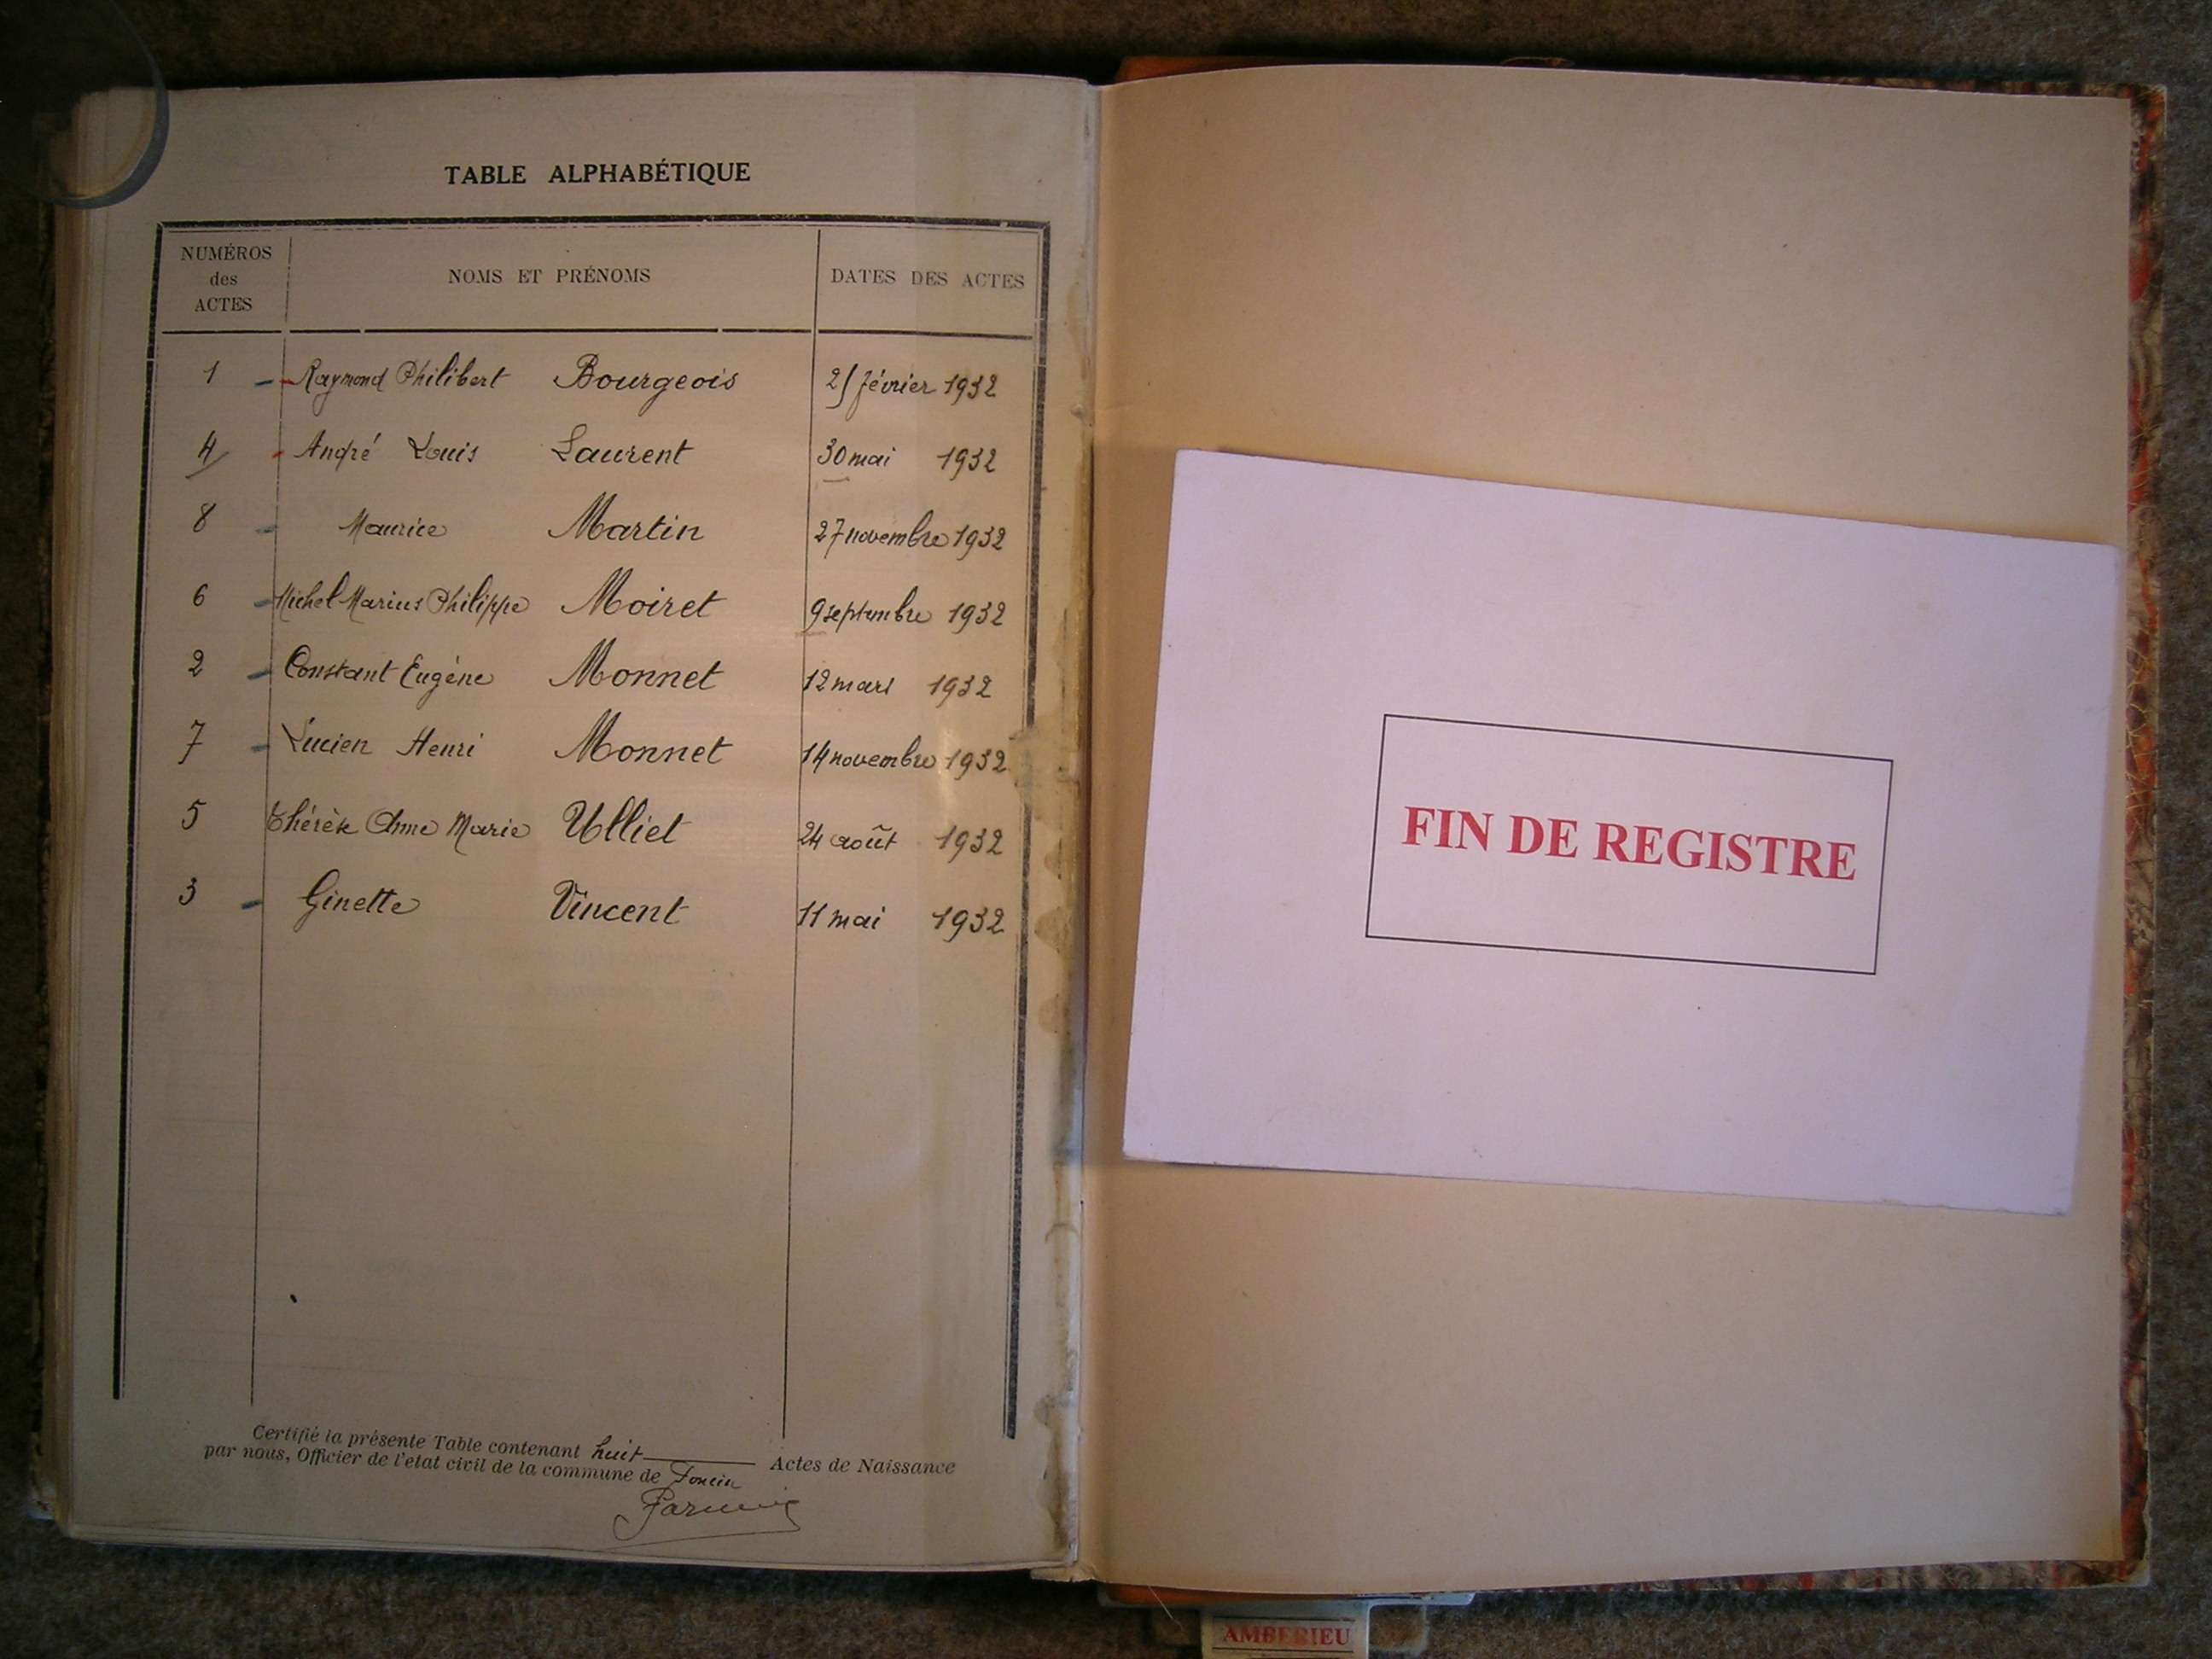 TABLE ALPHABÉTIQUE
NUMÉROS des ACTES NOMS ET PRÉNOMS DATES DES ACTES
1 Raymond Philibert Bourgeois février 1932
4 André Louis Laurent 30 mai 1932
8 Maurice Martin 27 novembre 1932
6 Michel Marius Philippe Moiret 9 septembre 1932
2 Constant Eugène Monnet 12 mars 1932
7 Lucien Henri Monnet 14 novembre 1932
5 Thérèse Anne Marie Ulliet 24 août 1932
3 Ginette Vincent 11 mai 1932
Certifié la présente Table contenant huit Actes de Naissance
par nous, Officier de l'etat civil de la commune de
FIN DE REGISTRE
AMBERIEU